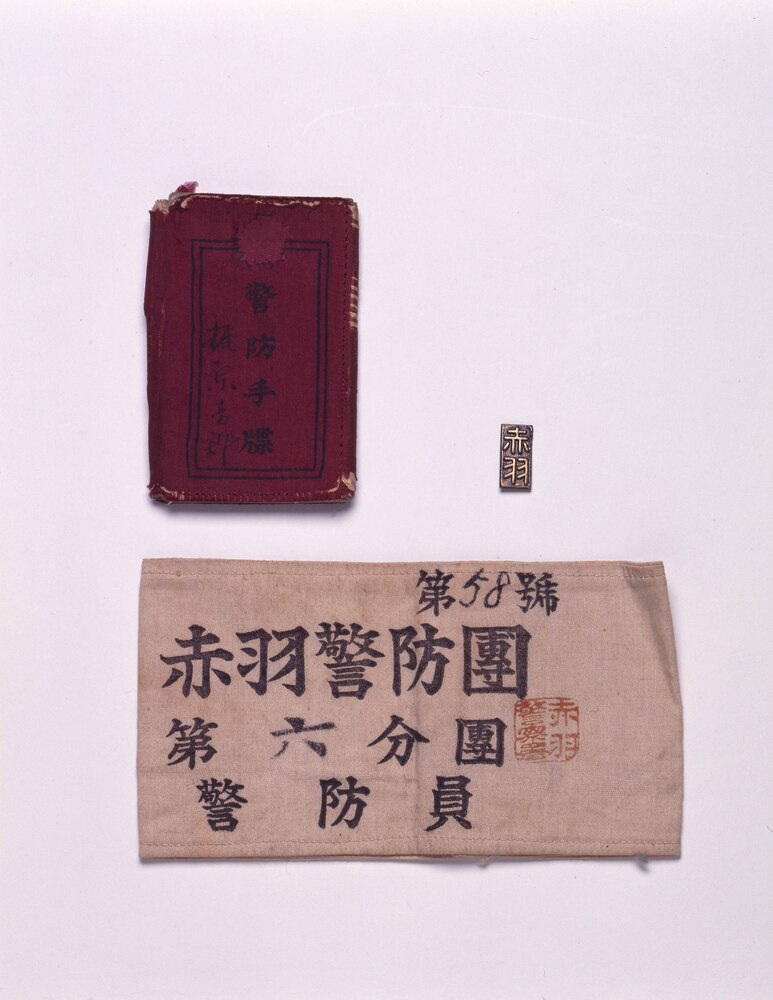 警防手牒
赤羽
第58號
赤羽警防團
第六分團
警防員
赤羽
警察署